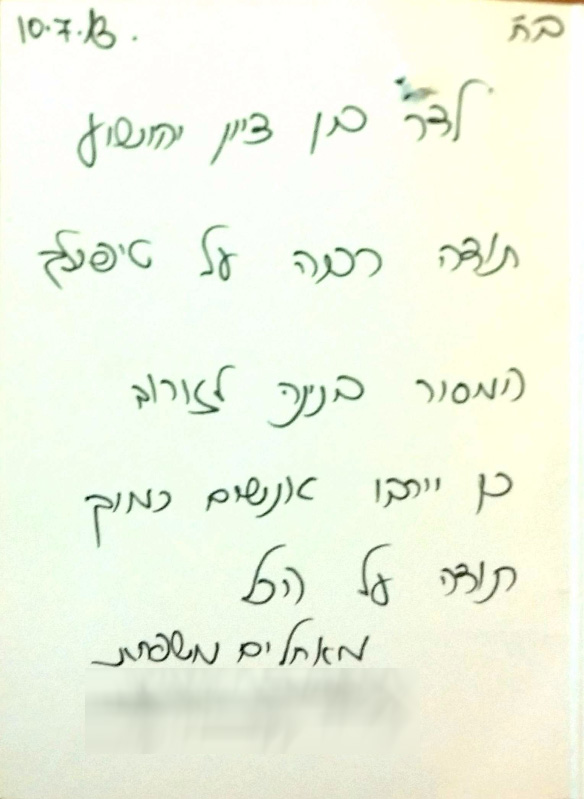 בה 10.7.13.
לדר בן ציון יהושוע
תודה רבה על טיפולך
המסור בנינה לאורוב
כן יירבו אנשים כמוך
תודה על הכל
מאחלים משפחת